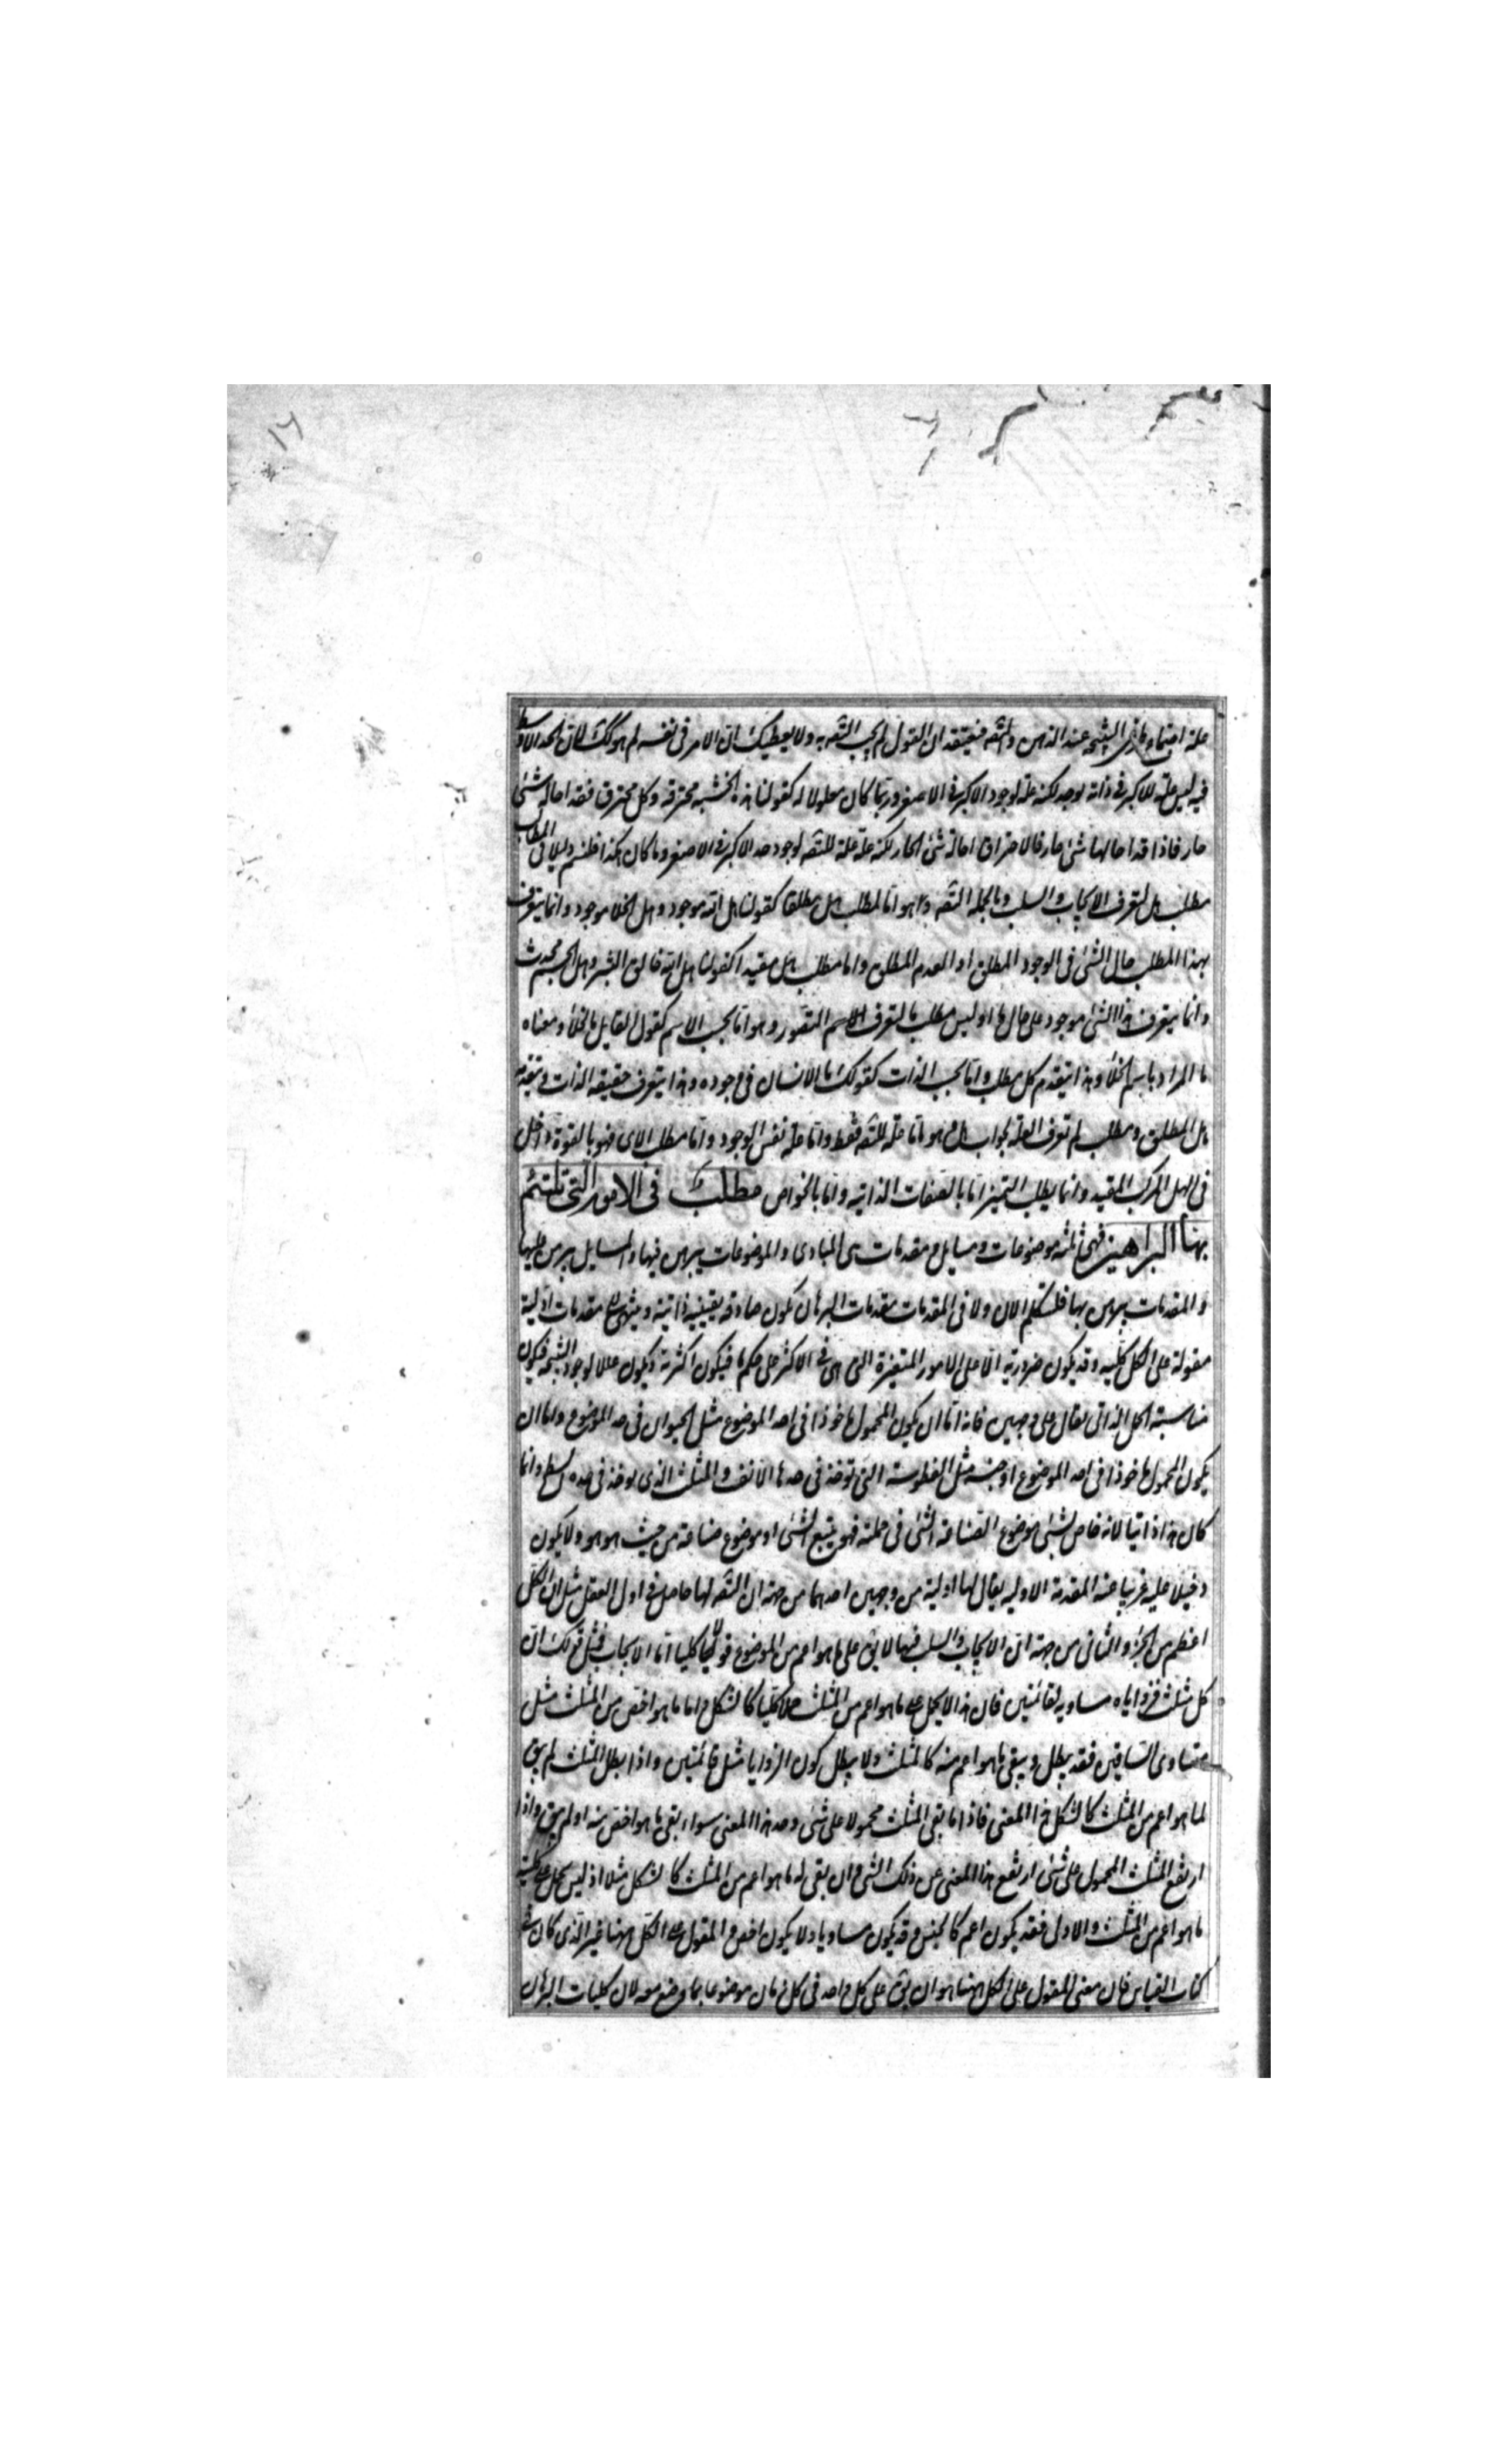 علة اجتماع طرفى النتيجة عند الذهن والتصديق فيعتقد ان القول لم يجب التصديق به ولا يعطيك ان الامر فى نفسه لم هو كذلك لان الحد الاوسط
فيه ليس علة للاكبر فى ذاته بوجه لكنه علة لوجود الاكبر فى الاصغر وربما كان معلولا له كقولنا هذه الخشبة محترقة وكل محترق فقد احاله شئ
حار فاذا قد احالها شئ حار فالاحتراق احالة شئ الحار لكنه علة للتصديق لوجود حد الاكبر فى الاصغر وما كان هكذا فلنسم دليلا فى المطالب
مطلب هل لتعرف الايجاب والسلب وبالجملة التصديق وهو اما لمطلب هل مطلقا كقولنا هل الله موجود وهل الخلا موجود وانما يتعرف
بهذا المطلب حال الشئ فى الوجود المطلق او العدم المطلق واما مطلب هل مقيدا كقولنا هل الله خالق البشر وهل الجسم محدث
وانما يتعرف هذا الشئ موجود على حال ما او ليس مطلب ما لتعرف الاسم المتصور وهو اما بحسب الاسم كقول القايل ما الخلأ ومعناه
ما المراد باسم الخلأ وهذا يتقدم كل مطلب واما بحسب الذات كقولك ما الانسان فى وجوده وهذا يتعرف حقيقة الذات ويتقدمه
هل المطلق ومطلب لم تعرف العلة لجواب هل وهو اما علة للتصديق فقط واما علة نفس الوجود واما مطلب الاى فهو بالقوة داخل
فى الهل المركب المقيد وانما يطلب التميز اما بالصفات الذاتية واما بالخواص مطلب فى الامور التى تلتئم
بهنا البراهين فهى ثلثه موضوعات ومسايل ومقدمات هى المبادى والموضوعات يبرهن فيها والمسايل يبرهن عليها
والمقدمات يبرهن بها فلنتكلم الان ولا فى المقدمات مقدمات البرهان تكون صادقة يقينية ذاتية وينتهى الى مقدمات اولية
مقولة على الكل كلية وقد يكون ضرورية الا على الامور المتغيرة التى هى فى الاكثر على حكم ما فيكون اكثرية وتكون عللا لوجود النتيجة فيكون
مناسبة الحمل الذاتى يقال على وجهين فانه اما ان يكون المحمول ماخوذا فى احد الموضوع مثل الحيوان فى حد الموضوع واما ان
يكون المحمول ماخوذا فى احد الموضوع او جنسه مثل الفطوسة التى توخذ فى حدها الانف والمثلث الذى يوخذ فى حده السطح وانما
كان هذا ذاتيا لانه خاص لشئ موضوع الصناعة الشئ فى جملته فهو يتبع الشئ او موضوع صناعة من حيث هو هو ولا يكون
دخيلا عليه غريبا عنه المقدمة الاولية يقال لها اولية من وجهين احدهما من جهة ان التصديق لها حاصل فى اول العقل مثل ان الكل
اعظم من الجزء والثانى من جهة ان الايجاب والسلب فيها لا يق على ما هو اعم من الموضوع قولا كليا اما الايجاب فمثل قولك ان
كل مثلث فزواياه مساوية لقائمتين فان هذا لا يحمل على ما هو اعم من المثلث حملا كليا كالشكل واما ما هو اخص من المثلث مثل
متساوى الساقين فقد يبطل ويبقى ما هو اعم منه كالمثلث ولا يبطل كون الزوايا مثل قائمتين واذا بطل المثلث لم يبق
لما هو اعم من المثلث كالشكل هذا المعنى فاذا ما بقى المثلث محمولا على شئ وجد هذا المعنى سواء بقى ما هو اخص منه او لم يبق واذا
ارتفع المثلث المحمول على شئ ارتفع هذا المعنى عن ذلك الشئ وان بقى له ما هو اعم من المثلث كالشكل مثلا اذ ليس يحمل على كلية
ما هو اعم من المثلث والاولى فقد يكون اعم كالجنس وقد يكون مساويا ولا يكون اخص والمقول على الكل ههنا غير الذى كان فى
كتاب القياس فان معنى المقول على الكل ههنا هو ان يق على كل واحد فى كل زمان موضوعا بما وضع معه لان كليات البرهان